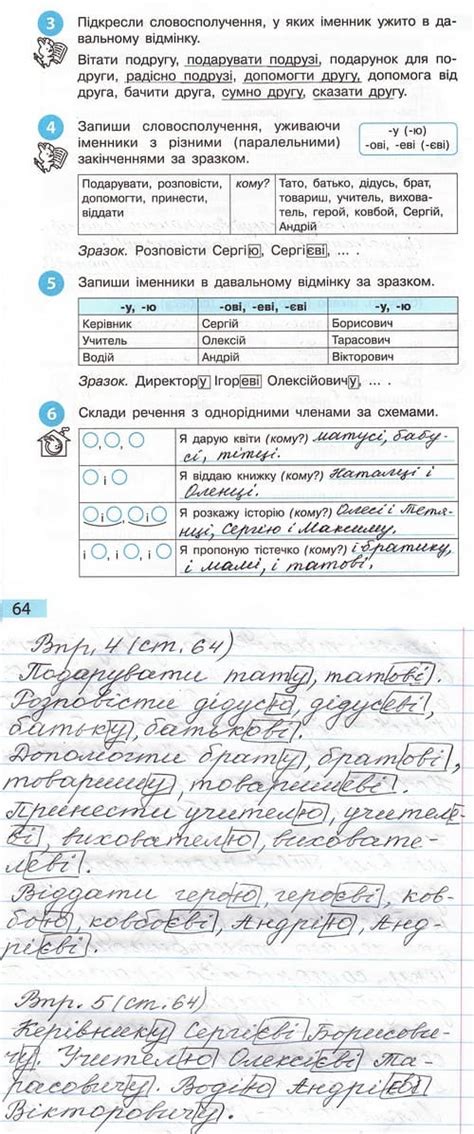 3 Підкресли словосполучення, у яких іменник ужито в да-
вальному відмінку.
Вітати подругу, подарувати подрузі, подарунок для по-
други, радісно подрузі, допомогти другу, допомога від
друга, бачити друга, сумно другу, сказати другу.
4 Запиши словосполучення, уживаючи
іменники з різними (паралельними)
закінченнями за зразком.
-у (-ю)
-ові, -еві (-єві)
Подарувати, розповісти,
допомогти, принести,
віддати
кому?
Тато, батько, дідусь, брат,
товариш, учитель, вихова-
тель, герой, ковбой, Сергій,
Андрій
Зразок. Розповісти Сергію, Сергієві, ... .
5 Запиши іменники в давальному відмінку за зразком.
-у, -ю -ові, -еві, -єві -у, -ю
Керівник Сергій Борисович
Учитель Олексій Тарасович
Водій Андрій Вікторович
Зразок. Директору Ігореві Олексійовичу, ... .
6 Склади речення з однорідними членами за схемами.
, , Я дарую квіти (кому?) матусі, бабу-
сі, тітці.
і Я віддаю книжку (кому?) Наталці і
Оленці.
і , і Я розкажу історію (кому?) Олесі і Тетя-
нці, Сергію і Максиму.
і , і , і Я пропоную тістечко (кому?) і братику,
і мамі, і татові.
64
Впр. 4 (ст. 64)
Подарувати тату, татові.
Розповісти дідусю, дідусеві,
батьку, батькові.
Допомогти брату, братові,
товаришу, товаришеві.
Принести учителю, учителе-
ві, вихователю, виховате-
леві.
Віддати герою, героєві, ков-
бою, ковбоєві, Андрію, Анд-
рієві.
Впр. 5 (ст. 64)
Керівнику Сергієві Борисови-
чу. Учителю Олексієві Та-
расовичу. Водію Андрієві
Вікторовичу.